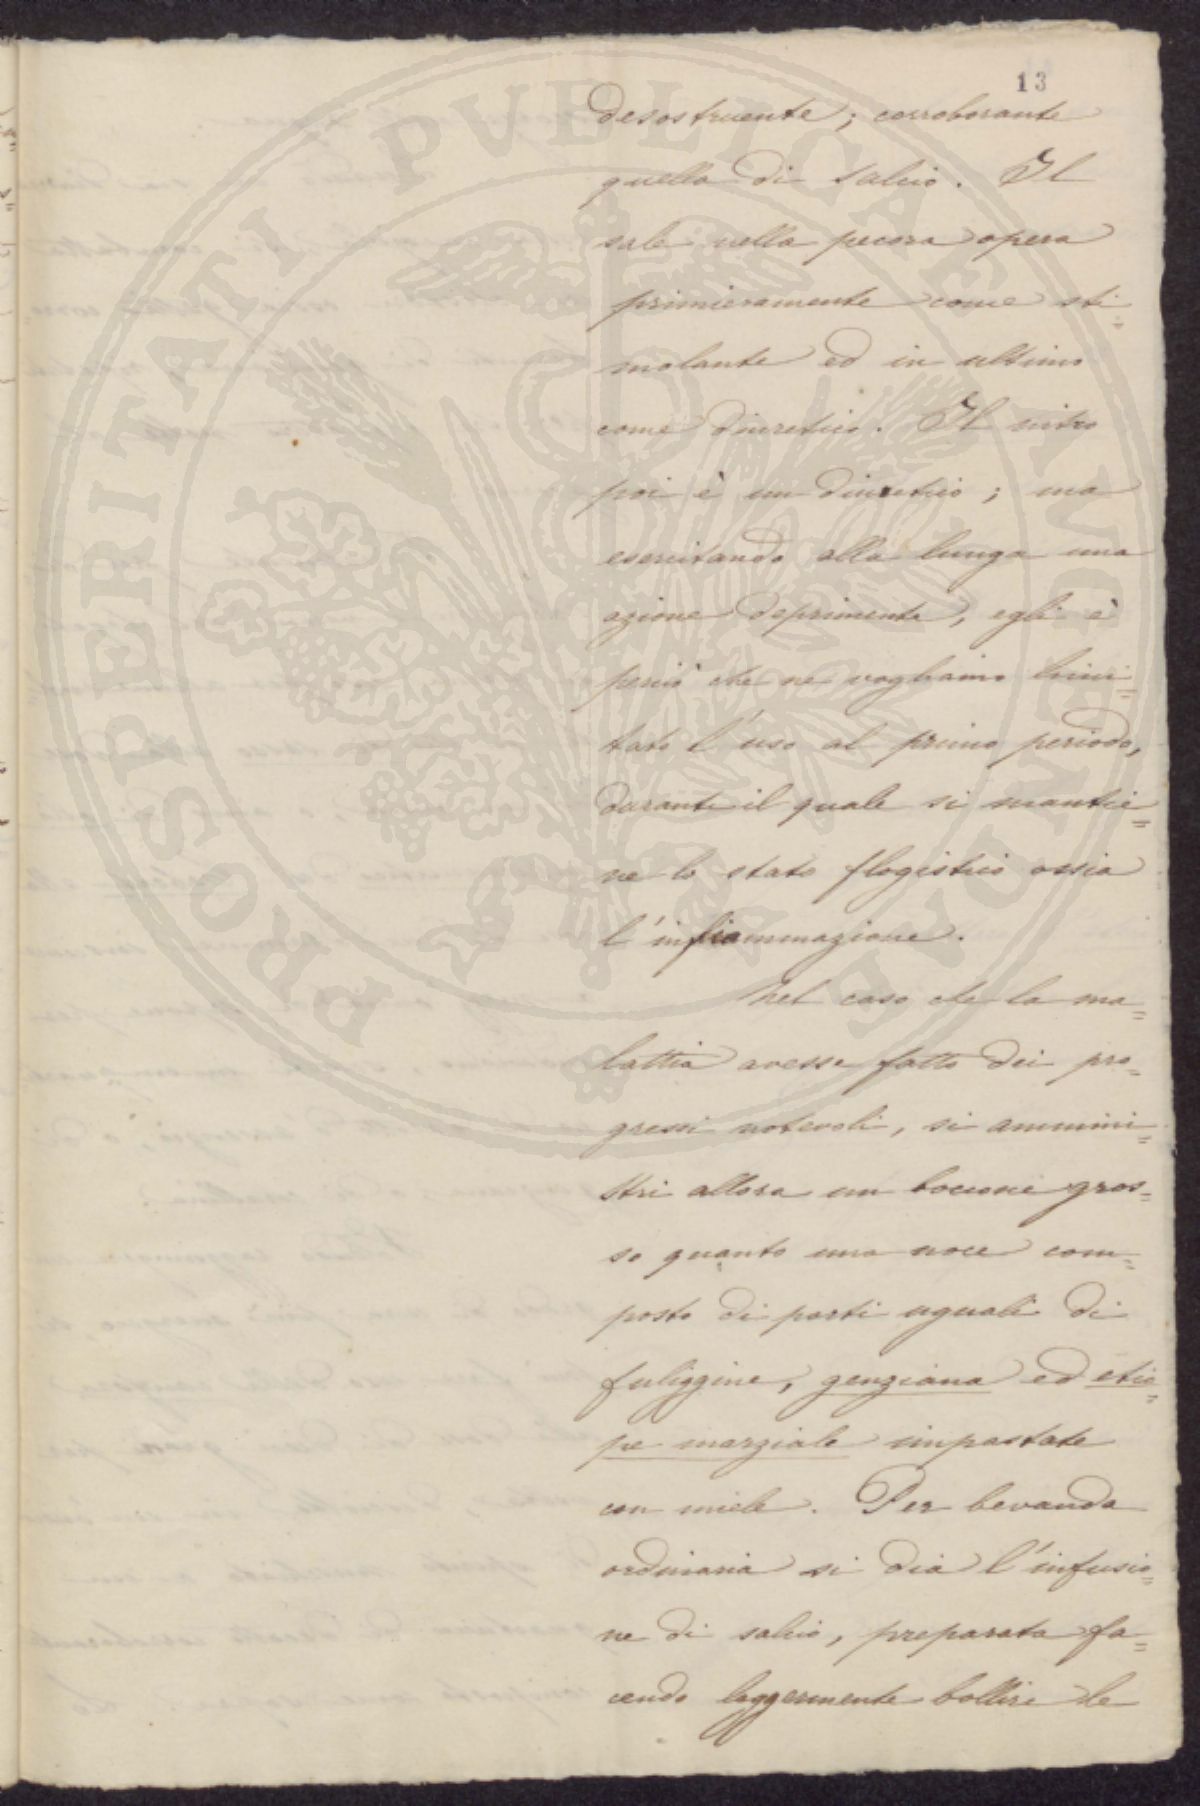 13
desostruente; corroborante
quella di salcio. Il
sale nella pecora opera
primieramente come sti=
molante ed in ultimo
come diuretico. Il nitro
poi è un diuretico; ma
esercitando alla lunga una
azione deprimente, egli è
perciò che ne vogliamo limi=
tato l'uso al primo periodo,
durante il quale si mantie=
ne lo stato flogistico ossia
l'infiammazione.
Nel caso che la ma=
lattia avesse fatto dei pro=
gressi notevoli, si ammini=
stri allora un boccone gros=
so quanto una noce com=
posto di parti uguali di
fuliggine, genziana ed etio=
pe marziale impastate
con miele. Per bevanda
ordinaria si dia l'infusio=
ne di salcio, preparata fa=
cendo leggermente bollire le
PROSPERITATI PVBLICAE AVGENDAE